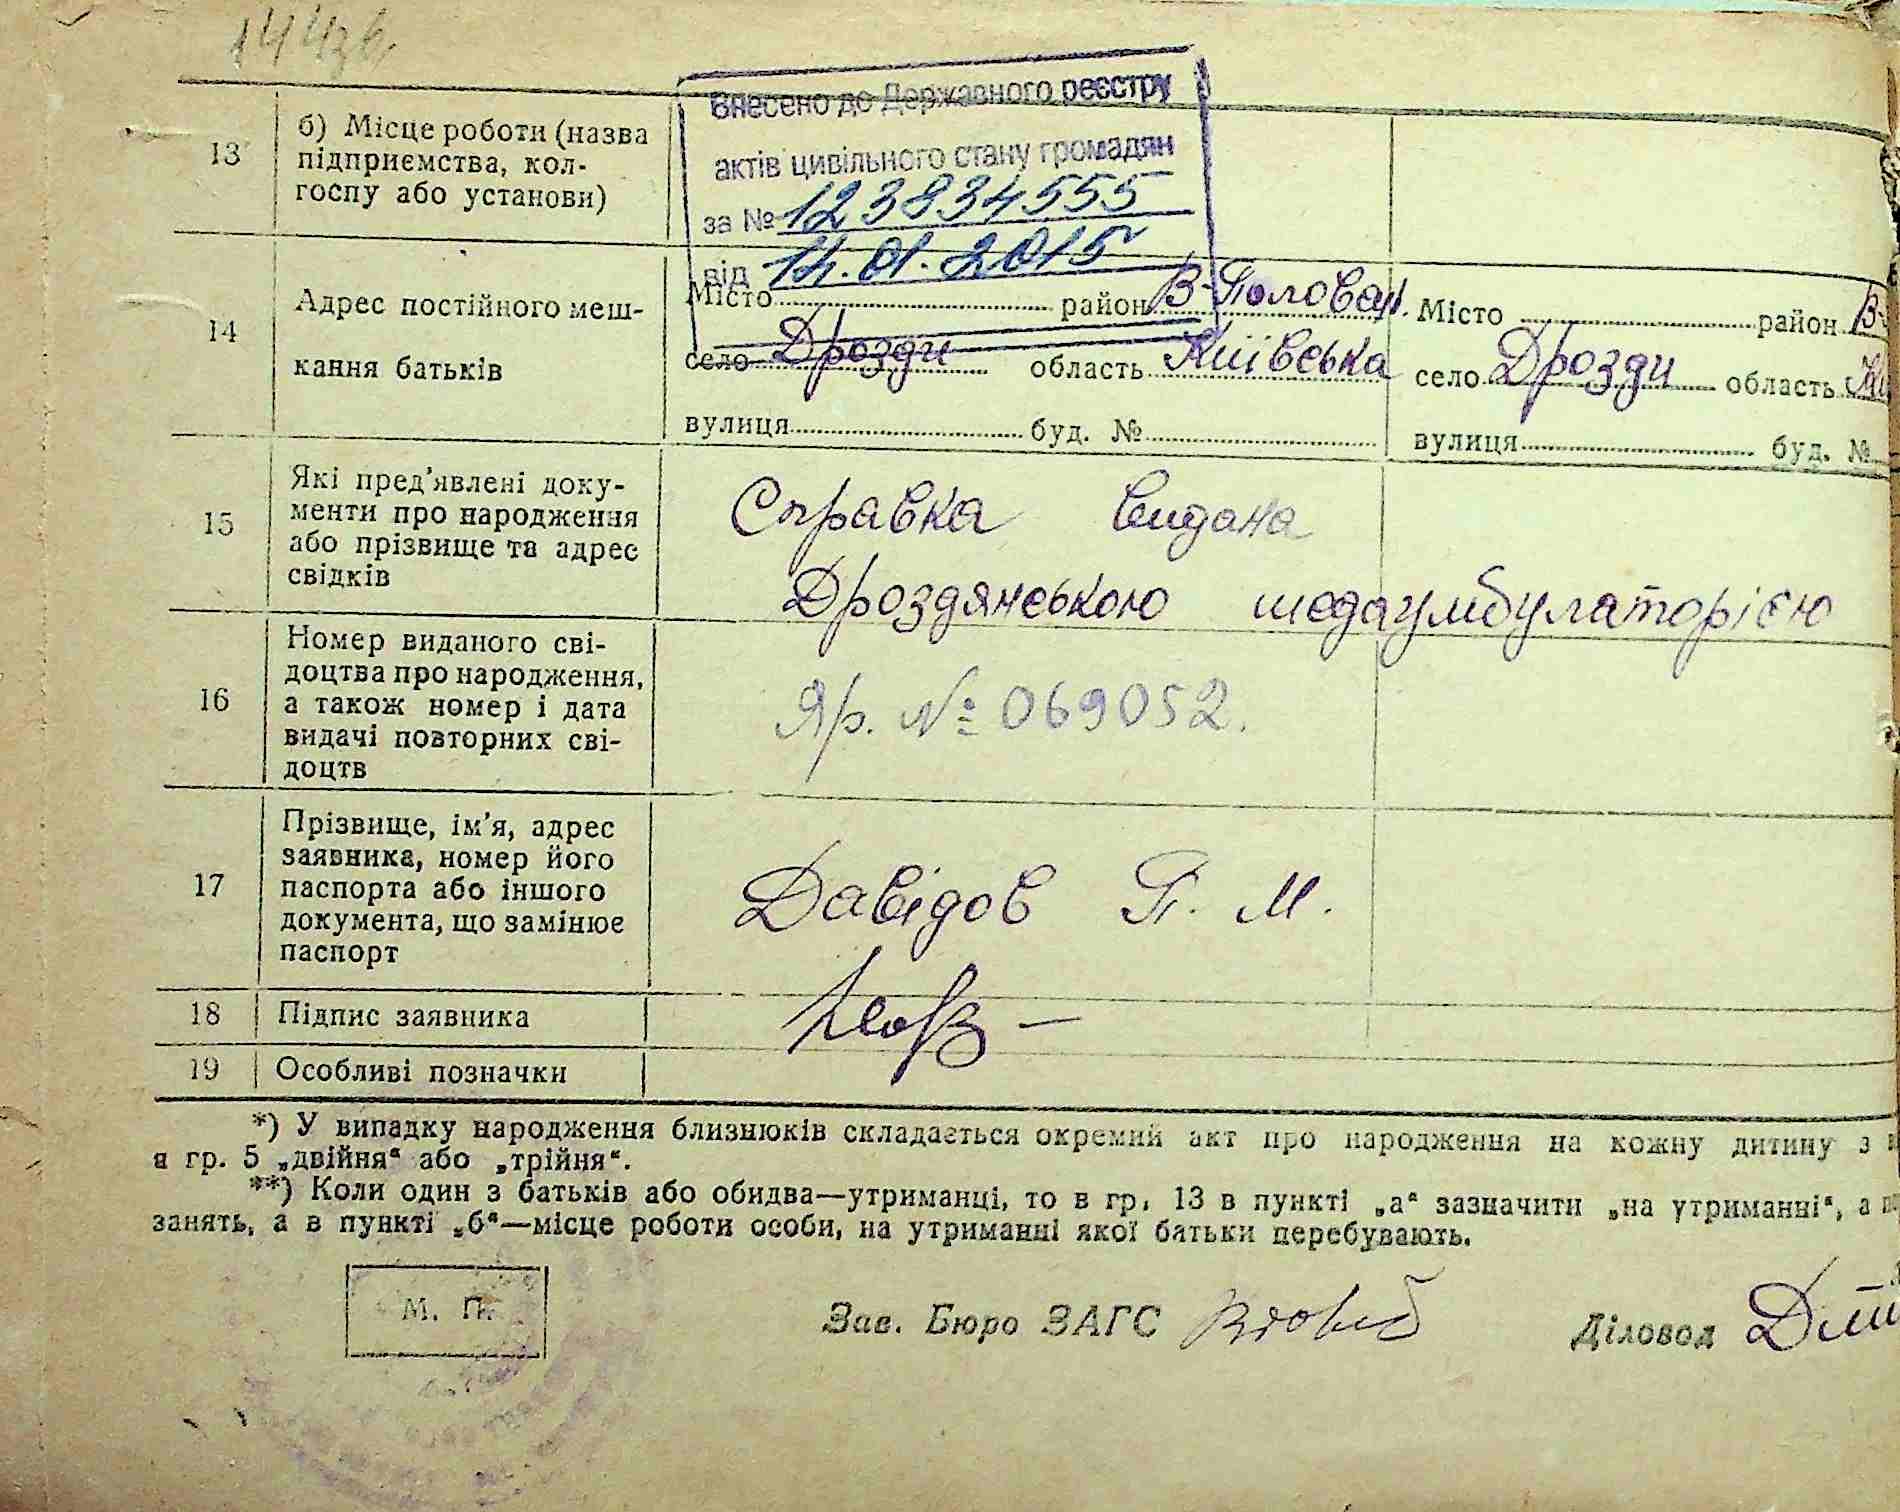 144зв.
Внесено до Державного реєстру
актів цивільного стану громадян
за № 123834555
від 14.01.2015
13 б) Місце роботи (назва
підприємства, кол-
госпу або установи)
14 Адрес постійного меш-
кання батьків
Місто район В-Половец.
село Дрозди область Київська
вулиця буд. №
Місто район В-
село Дрозди область Ки
вулиця буд. №
15 Які пред’явлені доку-
менти про народження
або прізвище та адрес
свідків
Справка видана
Дроздянською медаумбулаторією
16 Номер виданого сві-
доцтва про народження,
а також номер і дата
видачі повторних сві-
доцтв
Яр. № 069052.
17 Прізвище, ім’я, адрес
заявника, номер його
паспорта або іншого
документа, що замінює
паспорт
Давідов П. М.
18 Підпис заявника
19 Особливі позначки
*) У випадку народження близнюків складається окремий акт про народження на кожну дитину з
в гр. 5 „двійня“ або „трійня“.
**) Коли один з батьків або обидва—утриманці, то в гр. 13 в пункті „а“ зазначити „на утриманні“, а
занять, а в пункті „б“—місце роботи особи, на утриманні якої батьки перебувають.
М. П.
Зав. Бюро ЗАГС
Діловод